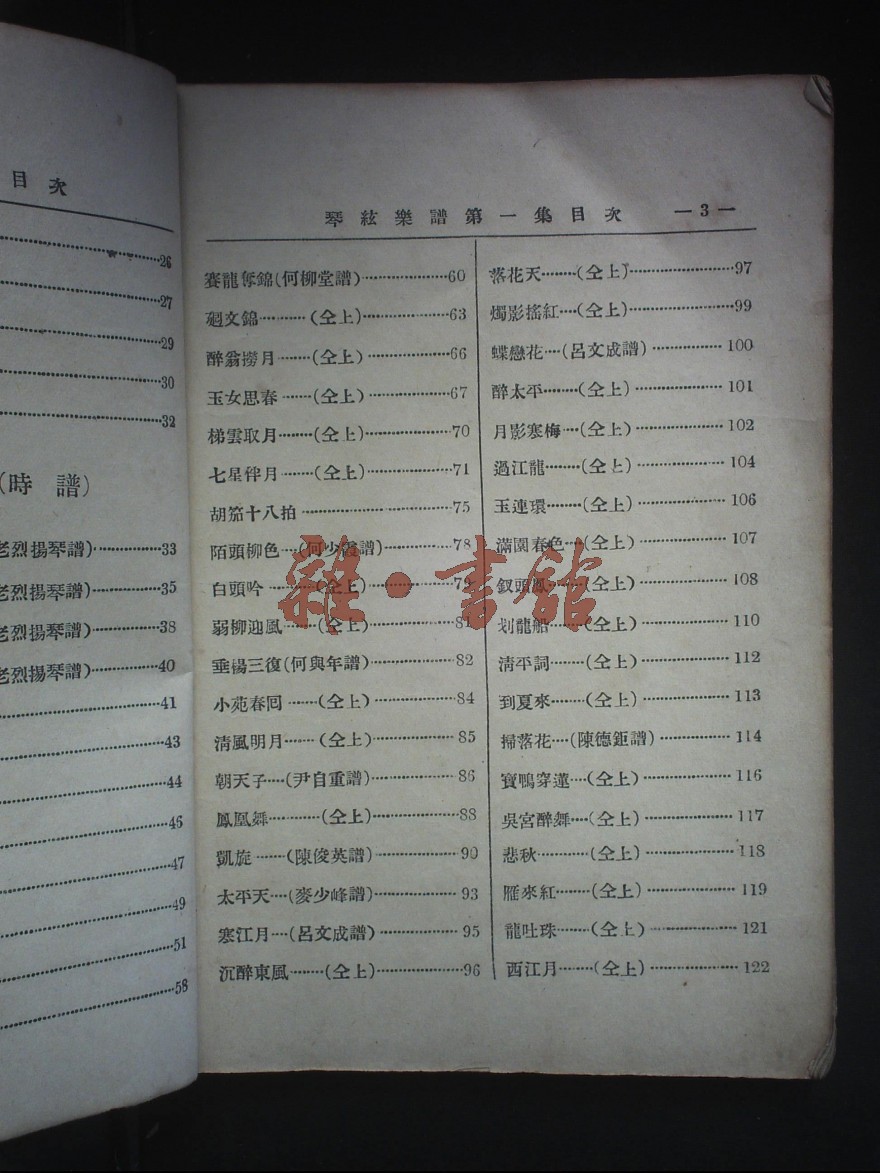 目次
26
27
29
30
32
(時譜)
老烈揚琴譜)············33
老烈揚琴譜)············35
老烈揚琴譜)············38
老烈揚琴譜)············40
41
43
44
46
47
49
51
58
琴絃樂譜第一集目次 —3—
賽龍奪錦(何柳堂譜)············60
廻文錦············(仝上)············63
醉翁撈月······(仝上)············66
玉女思春······(仝上)············67
梯雲取月······(仝上)············70
七星伴月······(仝上)············71
胡笳十八拍············75
陌頭柳色···(何少霞譜)············78
白頭吟············(仝上)············79
弱柳迎風······(仝上)············81
垂楊三復(何與年譜)············82
小苑春囘······(仝上)············84
清風明月······(仝上)············85
朝天子····(尹自重譜)············86
鳳凰舞············(仝上)············88
凱旋······(陳俊英譜)············90
太平天····(麥少峰譜)············93
寒江月····(呂文成譜)············95
沉醉東風······(仝上)············96
落花天······(仝上)············97
燭影搖紅····(仝上)············99
蝶戀花····(呂文成譜)············100
醉太平······(仝上)············101
月影寒梅····(仝上)············102
過江龍······(仝上)············104
玉連環······(仝上)············106
滿園春色····(仝上)············107
釵頭鳳······(仝上)············108
划龍船······(仝上)············110
清平詞······(仝上)············112
到夏來······(仝上)············113
掃落花····(陳德鉅譜)············114
寶鴨穿蓮····(仝上)············116
吳宮醉舞····(仝上)············117
悲秋············(仝上)············118
雁來紅······(仝上)············119
龍吐珠······(仝上)············121
西江月······(仝上)············122
雜·書館